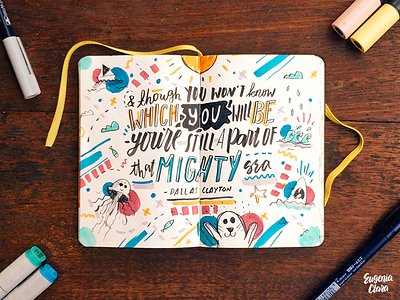 & though YOU WON'T know
WHICH YOU WILL BE
you're STILL A part OF
that MIGHTY sea
- DALLAS CLAYTON -
Eugenia
Clara